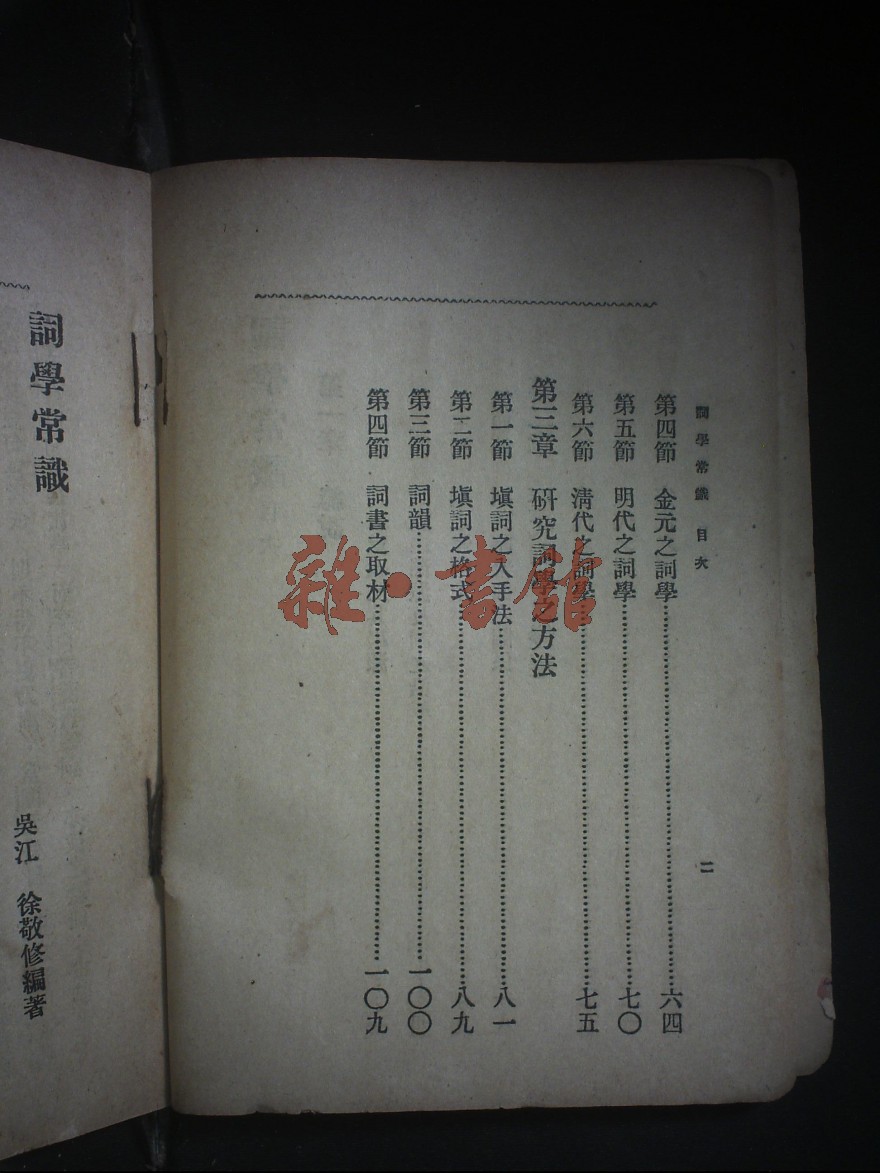 詞學常識 目次
二
第四節 金元之詞學……六四
第五節 明代之詞學……七〇
第六節 清代之詞學……七五
第三章 研究詞學之方法
第一節 填詞之入手法……八一
第二節 填詞之格式……八九
第三節 詞韻……一〇〇
第四節 詞書之取材……一〇九
詞學常識
吳江 徐敬修編著
雜·書館